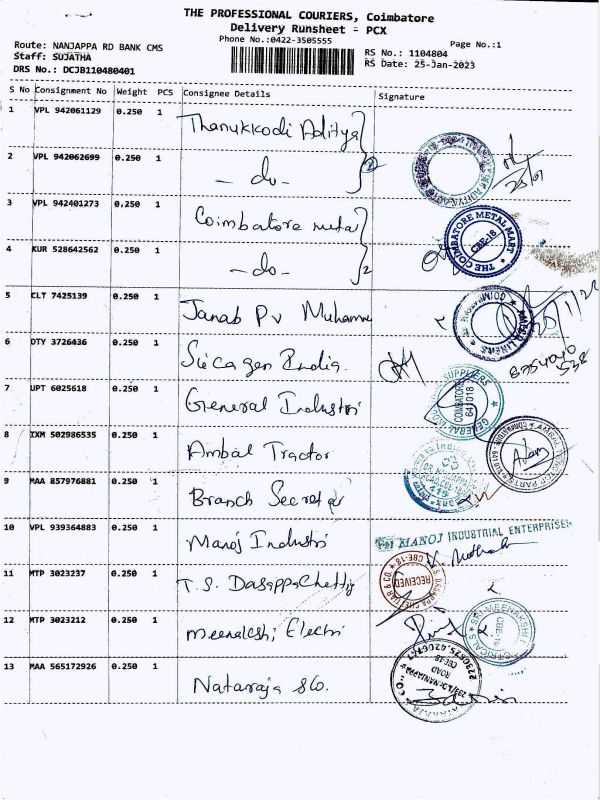 THE PROFESSIONAL COURIERS, Coimbatore
Delivery Runsheet = PCX
Phone No.:0422-3505555
Page No.:1
Route: NANJAPPA RD BANK CMS
Staff: SUJATHA
RS No.: 1104804
RS Date: 25-Jan-2023
DRS No.: DCJB110480401
S No Consignment No Weight PCS Consignee Details Signature
1 VPL 942061129 0.250 1 Thanukkodi Aditya
2 VPL 942062699 0.250 1 - do - 2
3 VPL 942401273 0.250 1 Coimbatore metal
4 KUR 528642562 0.250 1 - do - 2
THE COIMBATORE METAL MART
CBE-18
5 CLT 7425139 0.250 1 Janab Pv Muhamme
6 DTY 3726436 0.250 1 Sicagen India.
7 UPT 6025618 0.250 1 General Industri
SUPPLIERS
COIMBATORE
641 018
8 IXM 502986535 0.250 1 Ambal Tractor
9 MAA 857976881 0.250 1 Branch Secretar
10 VPL 939364883 0.250 1 Manoj Industri
For MANOJ INDUSTRIAL ENTERPRISES
11 MTP 3023237 0.250 1 T.S. Dasappa Chettiy
RECEIVED
CBE-18
12 MTP 3023212 0.250 1 Meenakshi Electri
SRI MEENAKSHI
CBE-18
13 MAA 565172926 0.250 1 Nataraja &Co.
ROAD
CBE-18